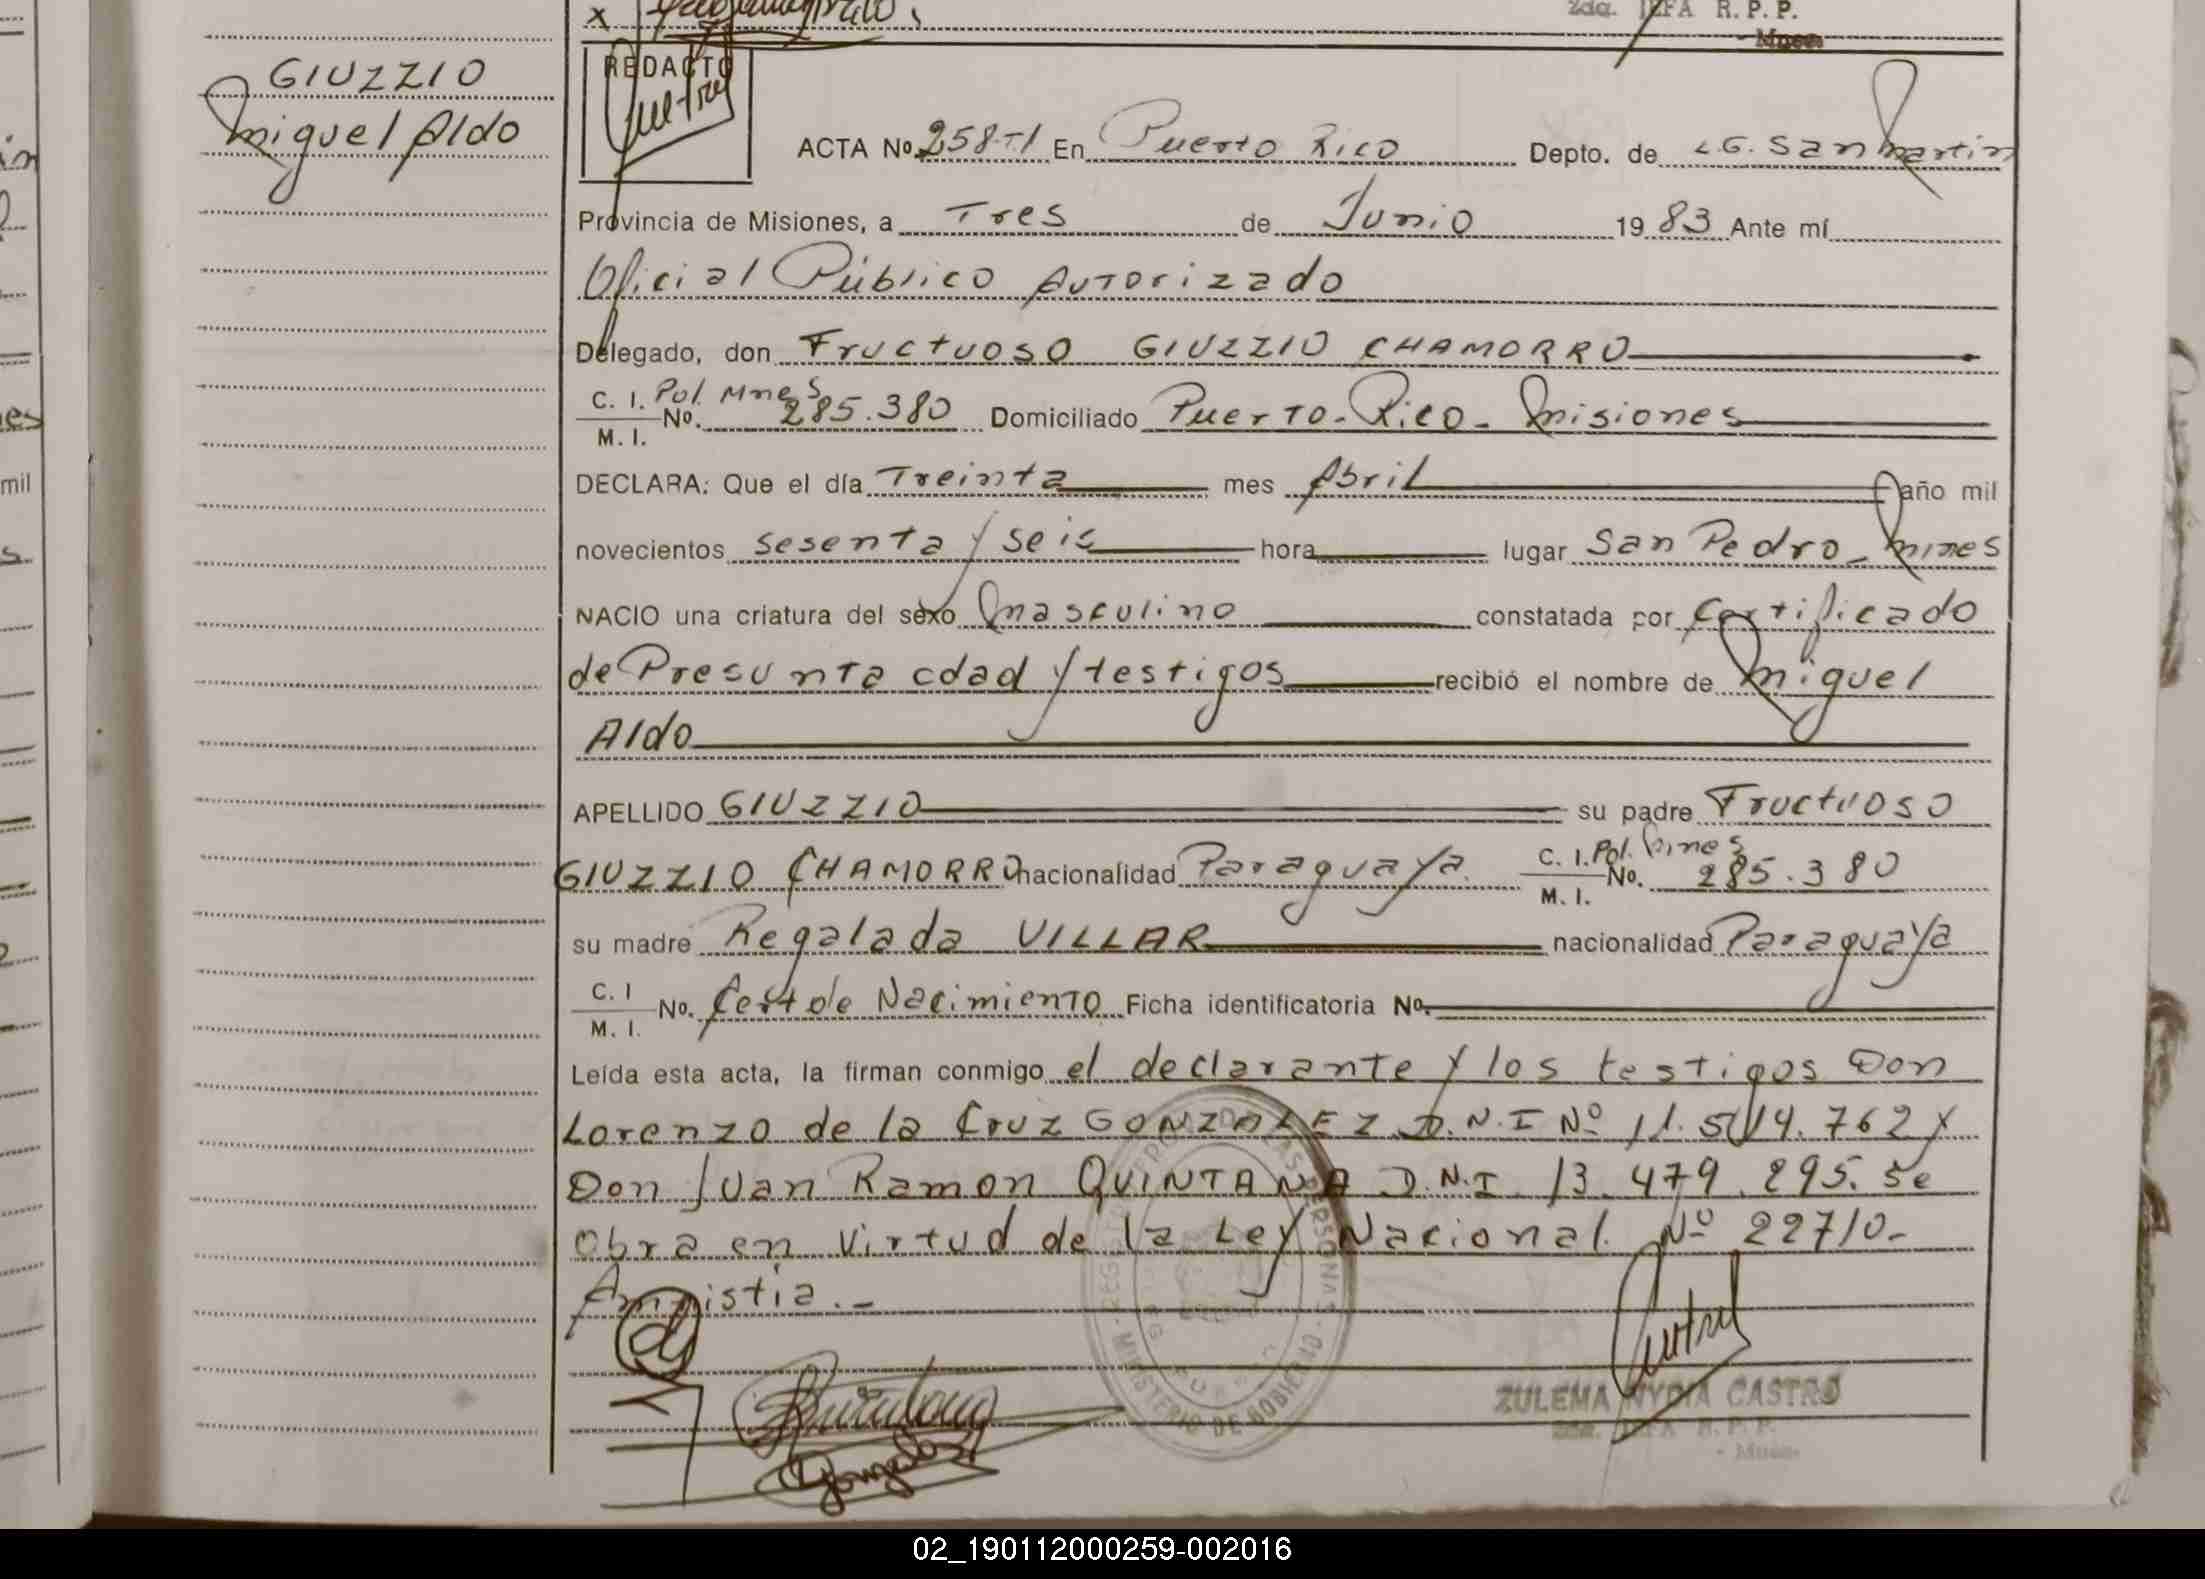 x
2da. JEFA R. P. P.
Mnes
GIUZZIO
Miguel Aldo
REDACTO
ACTA Nº 258-T1 En Puerto Rico Depto. de L.G. San Martin
Provincia de Misiones, a Tres de Junio 1983 Ante mí
Oficial Público Autorizado
Delegado, don Fructuoso GIUZZIO CHAMORRO
C. I. Pol. Mnes
M. I. No. 285.380 Domiciliado Puerto-Rico- Misiones
DECLARA: Que el día Treinta mes Abril año mil
novecientos sesenta y seis hora lugar San Pedro - Mnes
NACIO una criatura del sexo Masculino constatada por Certificado
de Presunta edad y testigos recibió el nombre de Miguel
Aldo
APELLIDO GIUZZIO su padre Fructuoso
GIUZZIO CHAMORRO nacionalidad Paraguaya C. I. Pol. Mnes
M. I. No. 285.380
su madre Regalada VILLAR nacionalidad Paraguaya
C. I
M. I. No. Cert de Nacimiento Ficha identificatoria No.
Leída esta acta, la firman conmigo el declarante y los testigos Don
Lorenzo de la Cruz GONZALEZ D.N.I Nº 11.514.762 y
Don Juan Ramon QUINTANA D.N.I 13.479.295. Se
Obra en virtud de la Ley Nacional Nº 22710-
Amnistia.-
MINISTERIO DE GOBIERNO
ZULEMA NYDIA CASTRO
2da. JEFA R. P. P.
- Mnes-
02_190112000259-002016